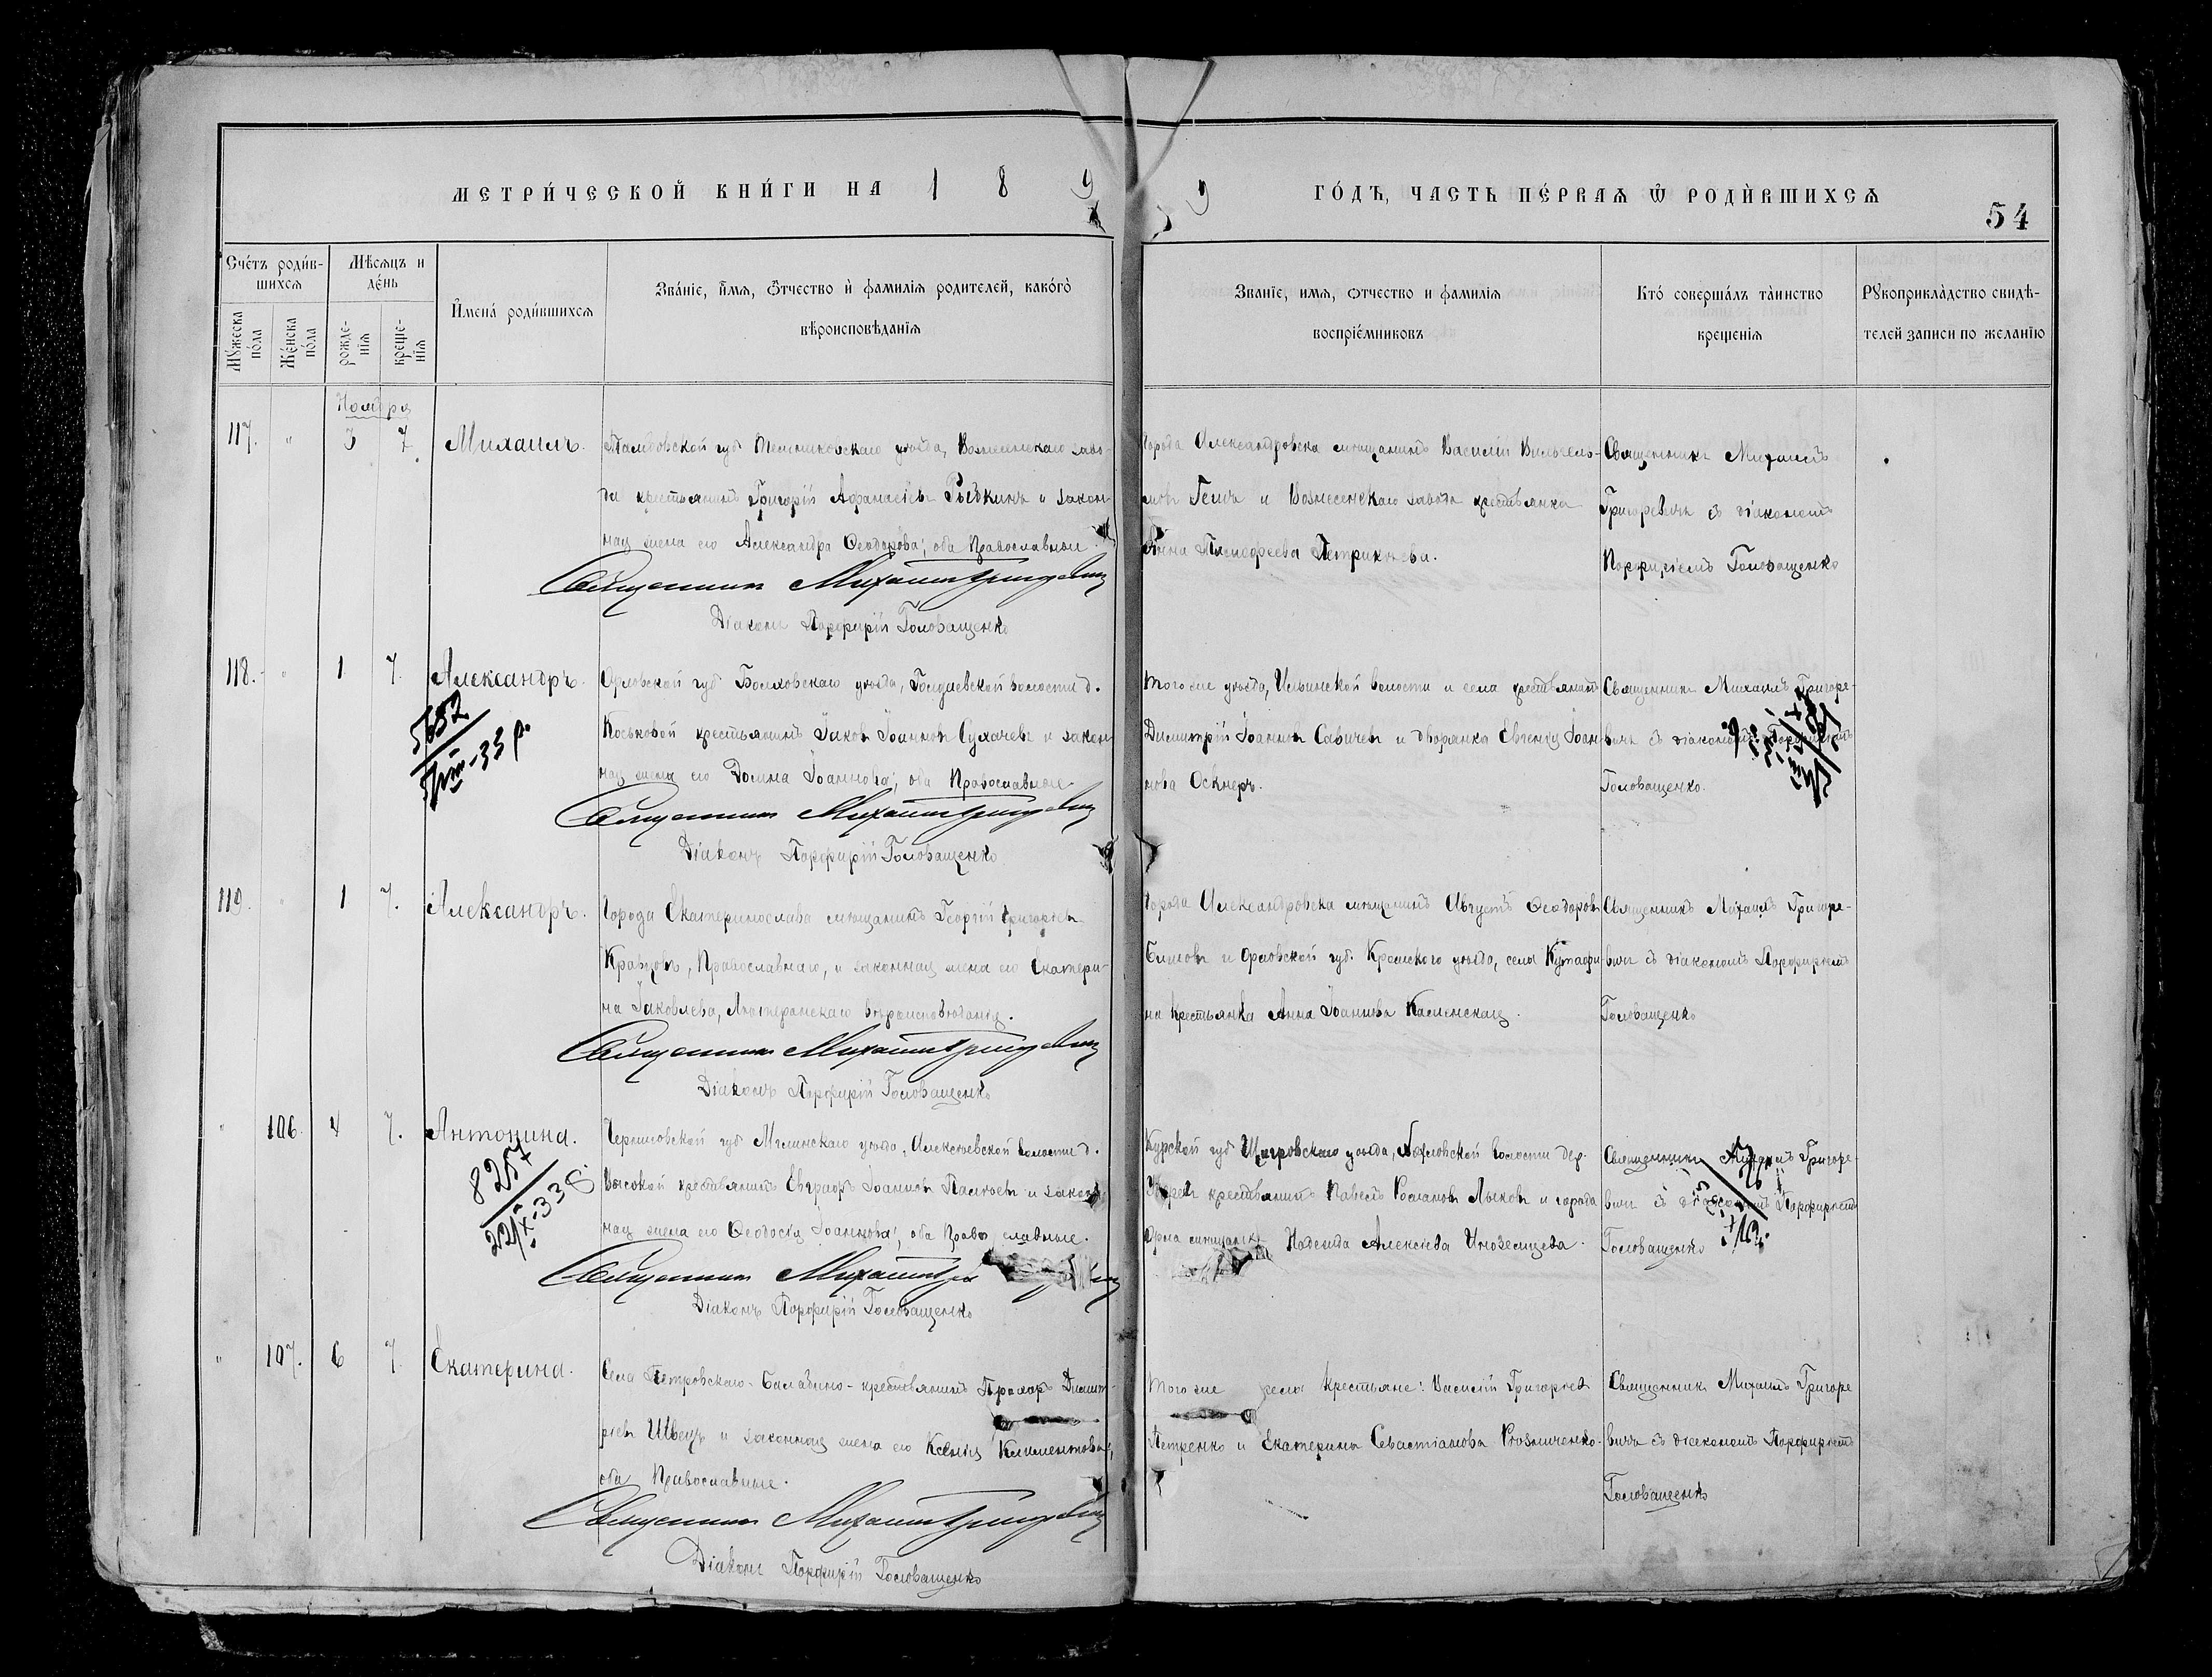 МЕТРИ́ЧЕСКОЙ КНИ́ГИ НА 1899 ГО́ДЪ, ЧАСТЬ ПЕ́РВАѦ Ѿ РОДИ́ВШИХСѦ
54
Сче́тъ роди́вшихсѧ
Мꙋжеска по́ла
Же́нска по́ла
Мѣсѧцъ и де́нь
рожде-нїѧ
креще-нїѧ
И҆мена̀ роди́вшихсѧ
Зва́нїе, и҆́мѧ, ѻ҆́тчество и҆ фамилїѧ родителей, како́гѡ
вѣроисповѣ́данїѧ
Званїе, имѧ, ѻтчество и фамилїѧ
воспрїе́мниковъ
Кто̀ соверша́лъ та̀инство
крещенїѧ
Рꙋкоприкла̀дство свидѣ-
телей записи по желанїю
Ноября
117. " 3 7 Михаилъ.
Тамбовской губ Темниковскаго уѣзда, Вознесенскаго заво-
да крестьянинъ Григорій Афанасіевъ Рыбкинъ и закон-
ная жена его Александра Ѳеодорова, оба Православные
Священникъ Михаилъ Григоревичъ
Діаконъ Порфирій Головащенко
Города Александровска мѣщанинъ Василій Вильгель-
мовъ Гешъ и Вознесенскаго завода крестьянка
Анна Петрикеева.
Священникъ Михаилъ
Григоревичъ съ діакономъ
Порфиріемъ Головащенко
118. " 1 7. Александръ.
Орловской губ Болховскаго уѣзда, волости д.
Коськовой крестьянинъ Іаковъ Іоанновъ Сухачевъ и закон
ная жена его Домна Іоаннова, оба Православные
Священникъ Михаилъ Григоревичъ
Діаконъ Порфирій Головащенко
Того же уѣзда, Ильинской волости и села крестьянинъ
Димитрій Іоанновъ Савичевъ и дворянка Евгенія Іоан
нова Оскнеръ.
Священникъ Михаилъ Григоре-
вичъ съ діакономъ Порфиріемъ
Головащенко.
5652
VIII-33 р.
119. " 1 7. Александръ.
Города Екатеринослава мѣщанинъ Георгій Григорьевъ
Кравцовъ, Православнаго, и законная жена его Екатери-
на Іаковлева, Лютеранскаго вѣроисповѣданія.
Священникъ Михаилъ Григоревичъ
Діаконъ Порфирій Головащенко
Города Александровска мѣщанинъ Августъ Ѳеодоровъ
и Орловской губ. Кромскаго уѣзда, села
на крестьянка Анна Іоаннова Каменская.
Священникъ Михаилъ Григоре-
вичъ съ діакономъ Порфиріемъ
Головащенко
" 106. 4 7. Антонина.
Черниговской губ Мглинскаго уѣзда, Алексѣевской волости д.
Высокой крестьянинъ Евграфъ Іоанновъ и закон
ная жена его Ѳеодосія Іоаннова, оба Православные.
Священникъ Михаилъ Григоревичъ
Діаконъ Порфирій Головащенко
Курской губ Щигровскаго уѣзда, волости дер.
крестьянинъ Павелъ Романовъ Лыковъ и города
Орла мѣщанка Надежда Алексіева Иноземцева.
Священникъ Михаилъ Григоре-
вичъ съ діакономъ Порфиріемъ
Головащенко
8257
22/X-33 г.
" 107. 6 7. Екатерина.
Села Петровскаго-Балабино-крестьянинъ Прохоръ Димит-
ріевъ Швецъ и законная жена его Ксенія Климентова,
оба Православные.
Священникъ Михаилъ Григоревичъ
Діаконъ Порфирій Головащенко
Того же села крестьяне: Василій Григорьевъ
Петренко и Екатерина Севастіанова Розниченко.
Священникъ Михаилъ Григоре
вичъ съ діакономъ Порфиріемъ
Головащенко